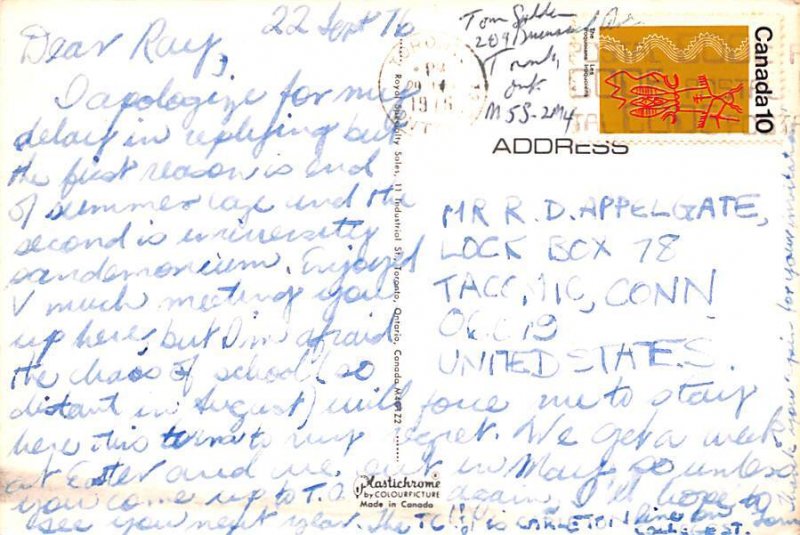 22 Sept 76
Dear Ray,
I apologize for my
delay in replying but
the first reason is end
of summer and the
second is university
pandemonium. Enjoyed
V much meeting you
up here, but I'm afraid
the chaos of school (so
distant in August) will force me to stay
here this term to my regret. We get a week
at Easter and we out in May so unless
you come up to T.O. again, I'll hope to
see you next year. The is CARLETON line on
COLLEGE ST.
thank you again for your
Tom
209
Toronto,
Ont.
M5S-2M4
1976
The
Les
Canada 10
ADDRESS
MR R. D. APPELGATE,
LOCK BOX 78
TACONIC, CONN
UNITED STATES.
Royal Specialty Sales, 11 Industrial St., Toronto, Ontario, Canada M4G 1Z2
Plastichrome
by COLOURPICTURE
Made in Canada